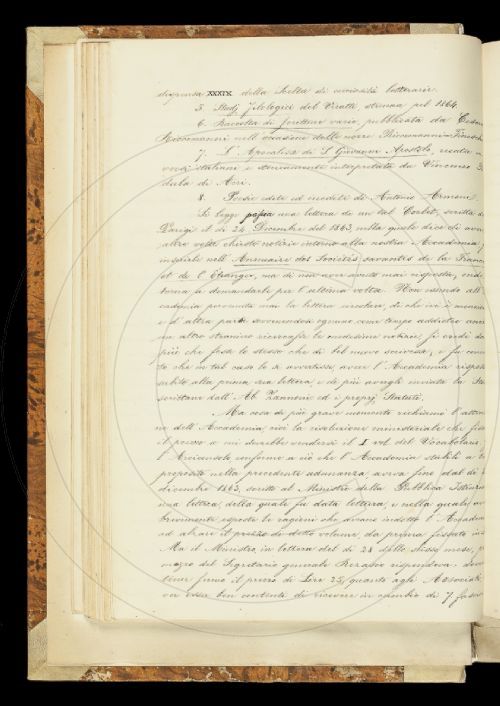 dispensa XXXIX della Scelta di curiosità letterarie.
5. Studj filologici del Viratti, strenna pel 1864.
6. Raccolta di scritture varie, pubblicata da Cesare
Riccomanni nell' occasione delle nozze Riccomanni-Fin
7. L' Apocalisse di S. Giovanni Apostolo recata in
versi italiani e storicamente interpretata da Vincenzo
dula di Acri.
8. Poesie edite ed inedite di Antonio
Si legge poscia una lettera di un tal Corbet, scritta da
Parigi il dì 24 Dicembre del 1863, nella quale dice di aver
altre volte chieste notizie intorno alla nostra Accademia,
inserirle nell' Annuaire des Sociétés savantes de la France
et de l' Etranger, ma di non aver avuto mai risposta, onde
torna a domandarle per l' ultima volta. Non essendo all' Ac
cademia pervenuta mai la lettera circolare, di che ivi è menzione
e d' altra parte sovvenendosi ognuno come tempo addietro anco
un altro straniero ricercasse le medesime notizie, si credè da
più che fosse lo stesso che di bel nuovo scrivesse, e fu conve
to che in tal caso lo si avvertisse aver l' Accademia risposto
subito alla prima sua lettera, e di più avergli inviata la Storia
scrittane dall' Ab. Zannoni ed i proprj Statuti.
Ma cosa di più grave momento richiamò l' attenzio
ne dell' Accademia, cioè la risoluzione ministeriale che fissa
il prezzo a cui dovrebbe vendersi il I vol. del Vocabolario.
L' Arciconsolo conforme a ciò che l' Accademia stabilì a tal
proposito nella precedente adunanza, aveva fino dal dì
dicembre 1863, scritto al Ministro della Pubblica Istruzione
una lettera, della quale fu data lettura, e nella quale
brevemente esposte le ragioni che aveano indotto l' Accademia
ad alzare il prezzo di detto volume, da prima fissato in
Ma il Ministro in lettera del dì 28 dello stesso mese, per
mezzo del Segretario generale rispondeva dover
tener fermo il prezzo di Lire 25, quanto agli Associati
ver esser ben contenti di ricevere in cambio di 7 fasci